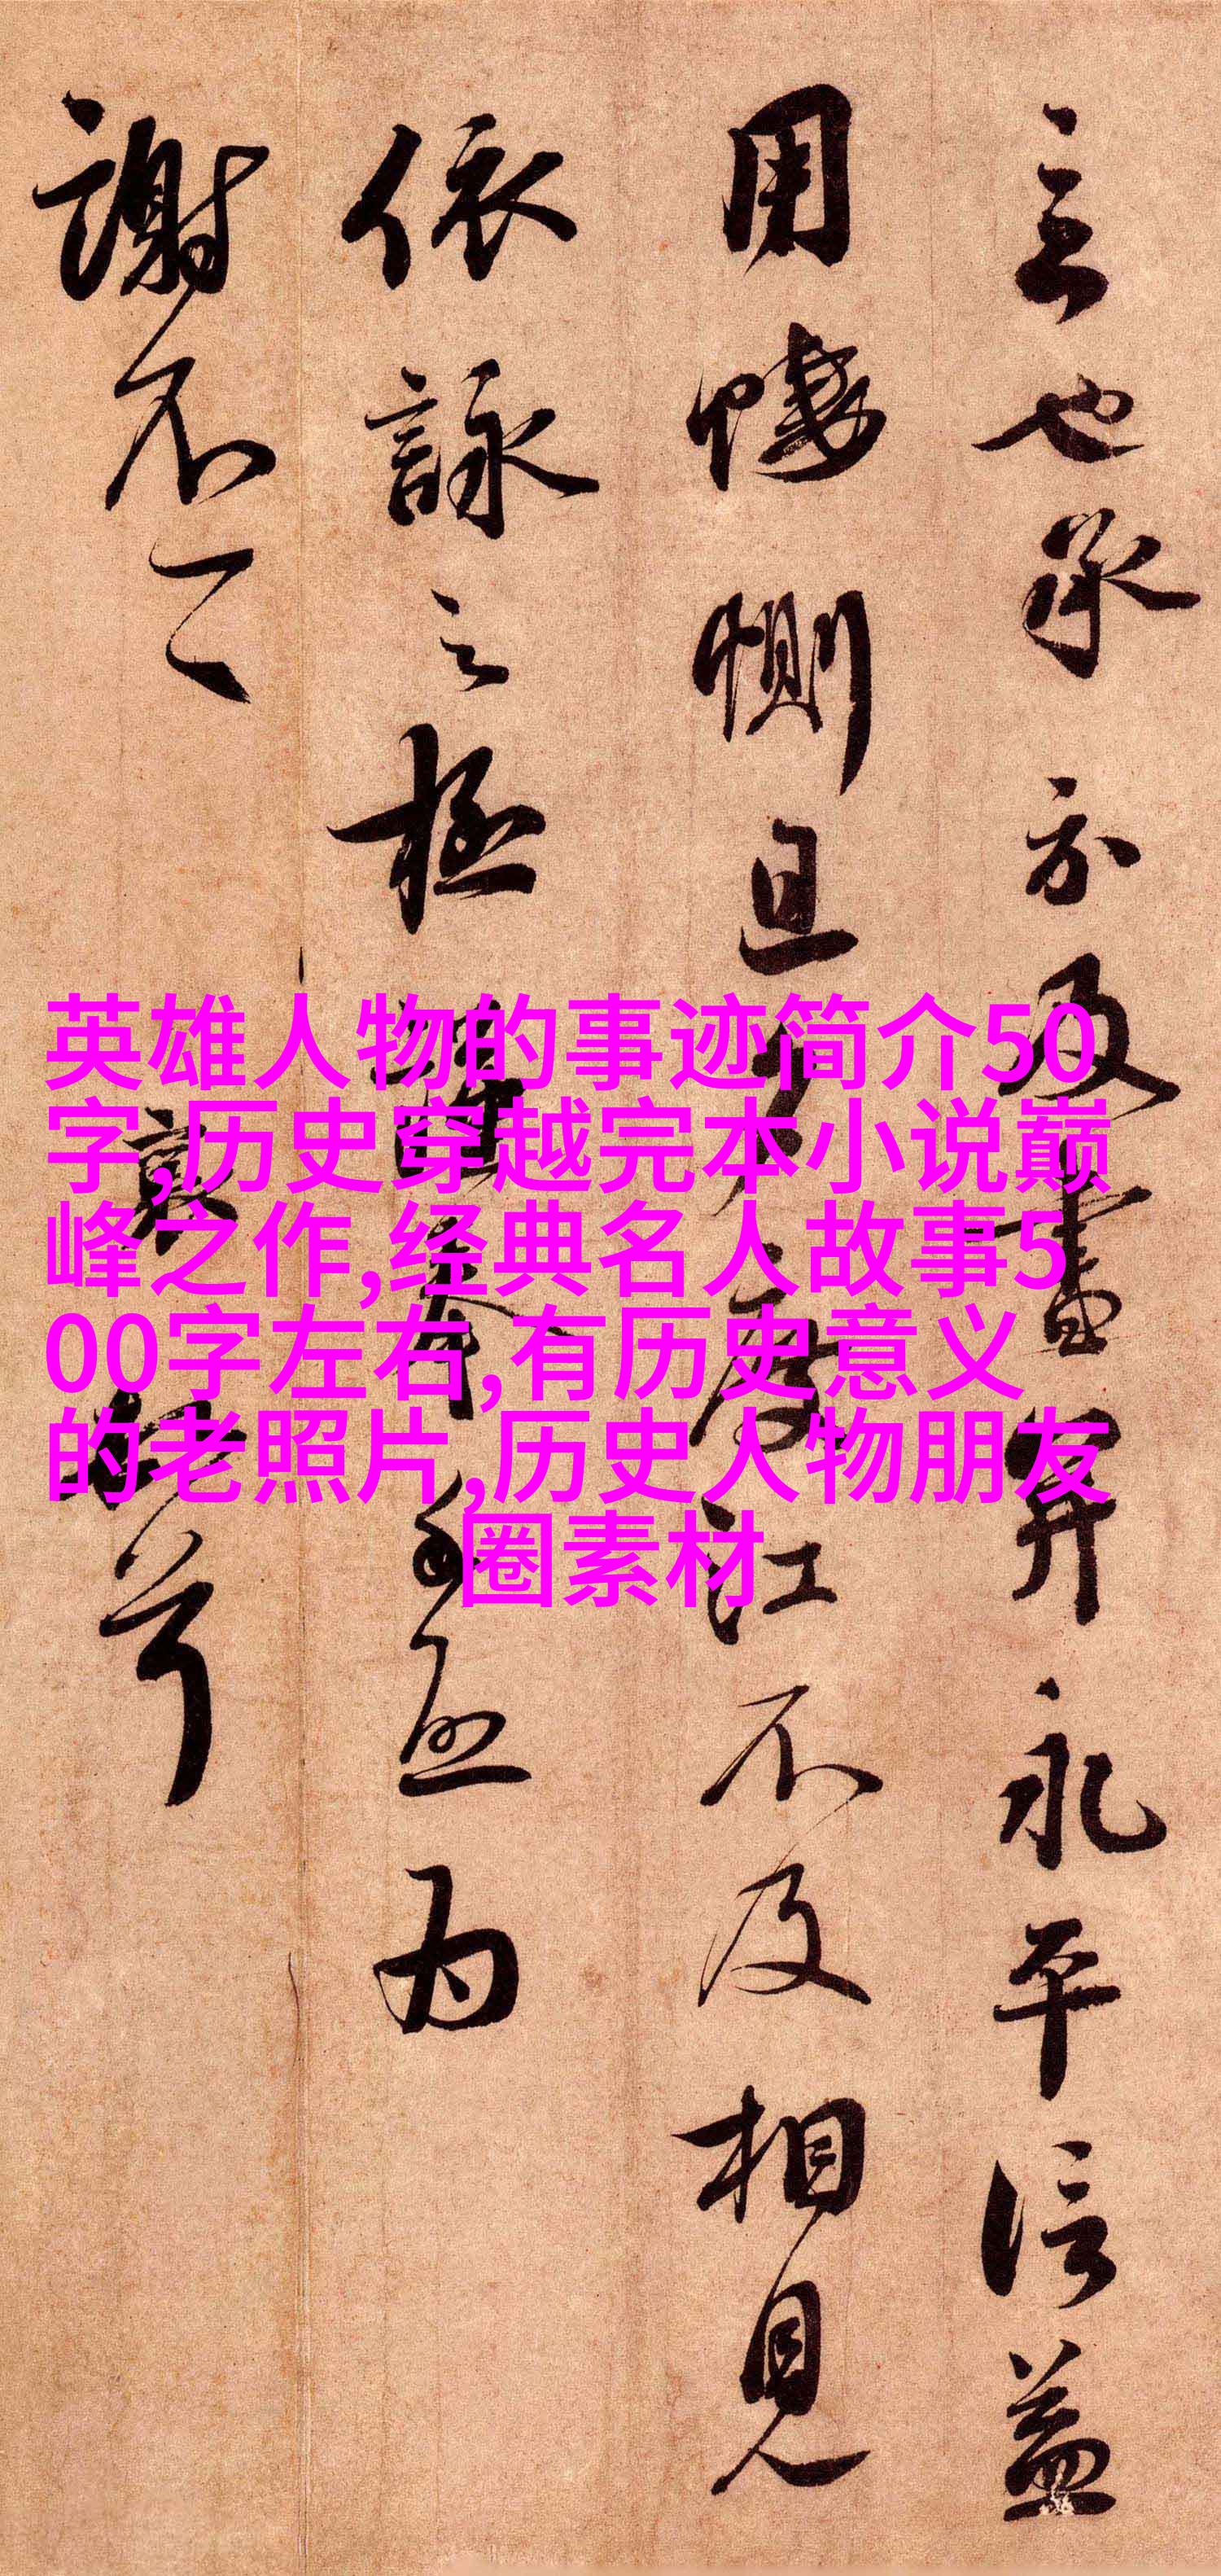 言也承示及畫寡永平信益
用悽惻且夕度江不及相見
依詠之極謹奉手啟为
謝不一
英雄人物的事迹简介50
字,历史穿越完本小说巅
峰之作,经典名人故事5
00字左右,有历史意义
的老照片,历史人物朋友
圈素材